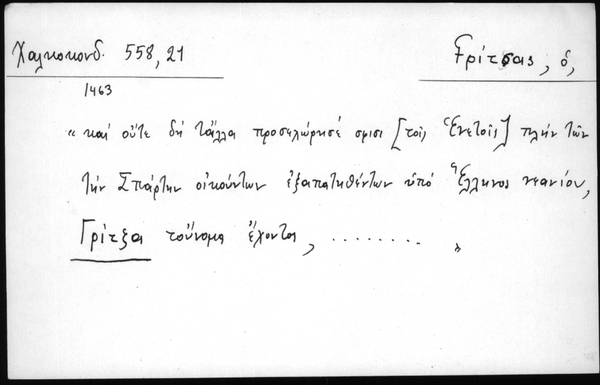 Χαλκοκονδ. 558, 21
Γρίτσας, ὁ,
1463
"καὶ οὔτε δὴ τἄλλα προσεχώρησέ σφισι [τοῖς Ἐνετοῖς] πλὴν τῶν
τὴν Σπάρτην οἰκούντων ἐξαπατηθέντων ὑπὸ Ἕλληνος νεανίου,
Γρίτξα τοὔνομα ἔχοντος, ........ "